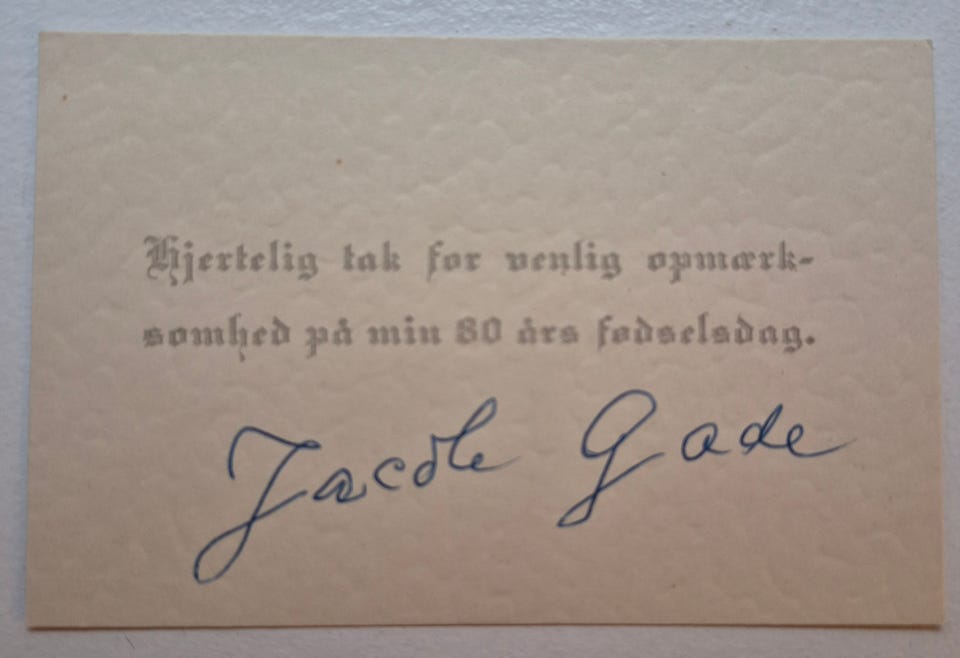 Hjertelig tak for venlig opmærk-
somhed på min 80 års fødselsdag.
Jacob Gade